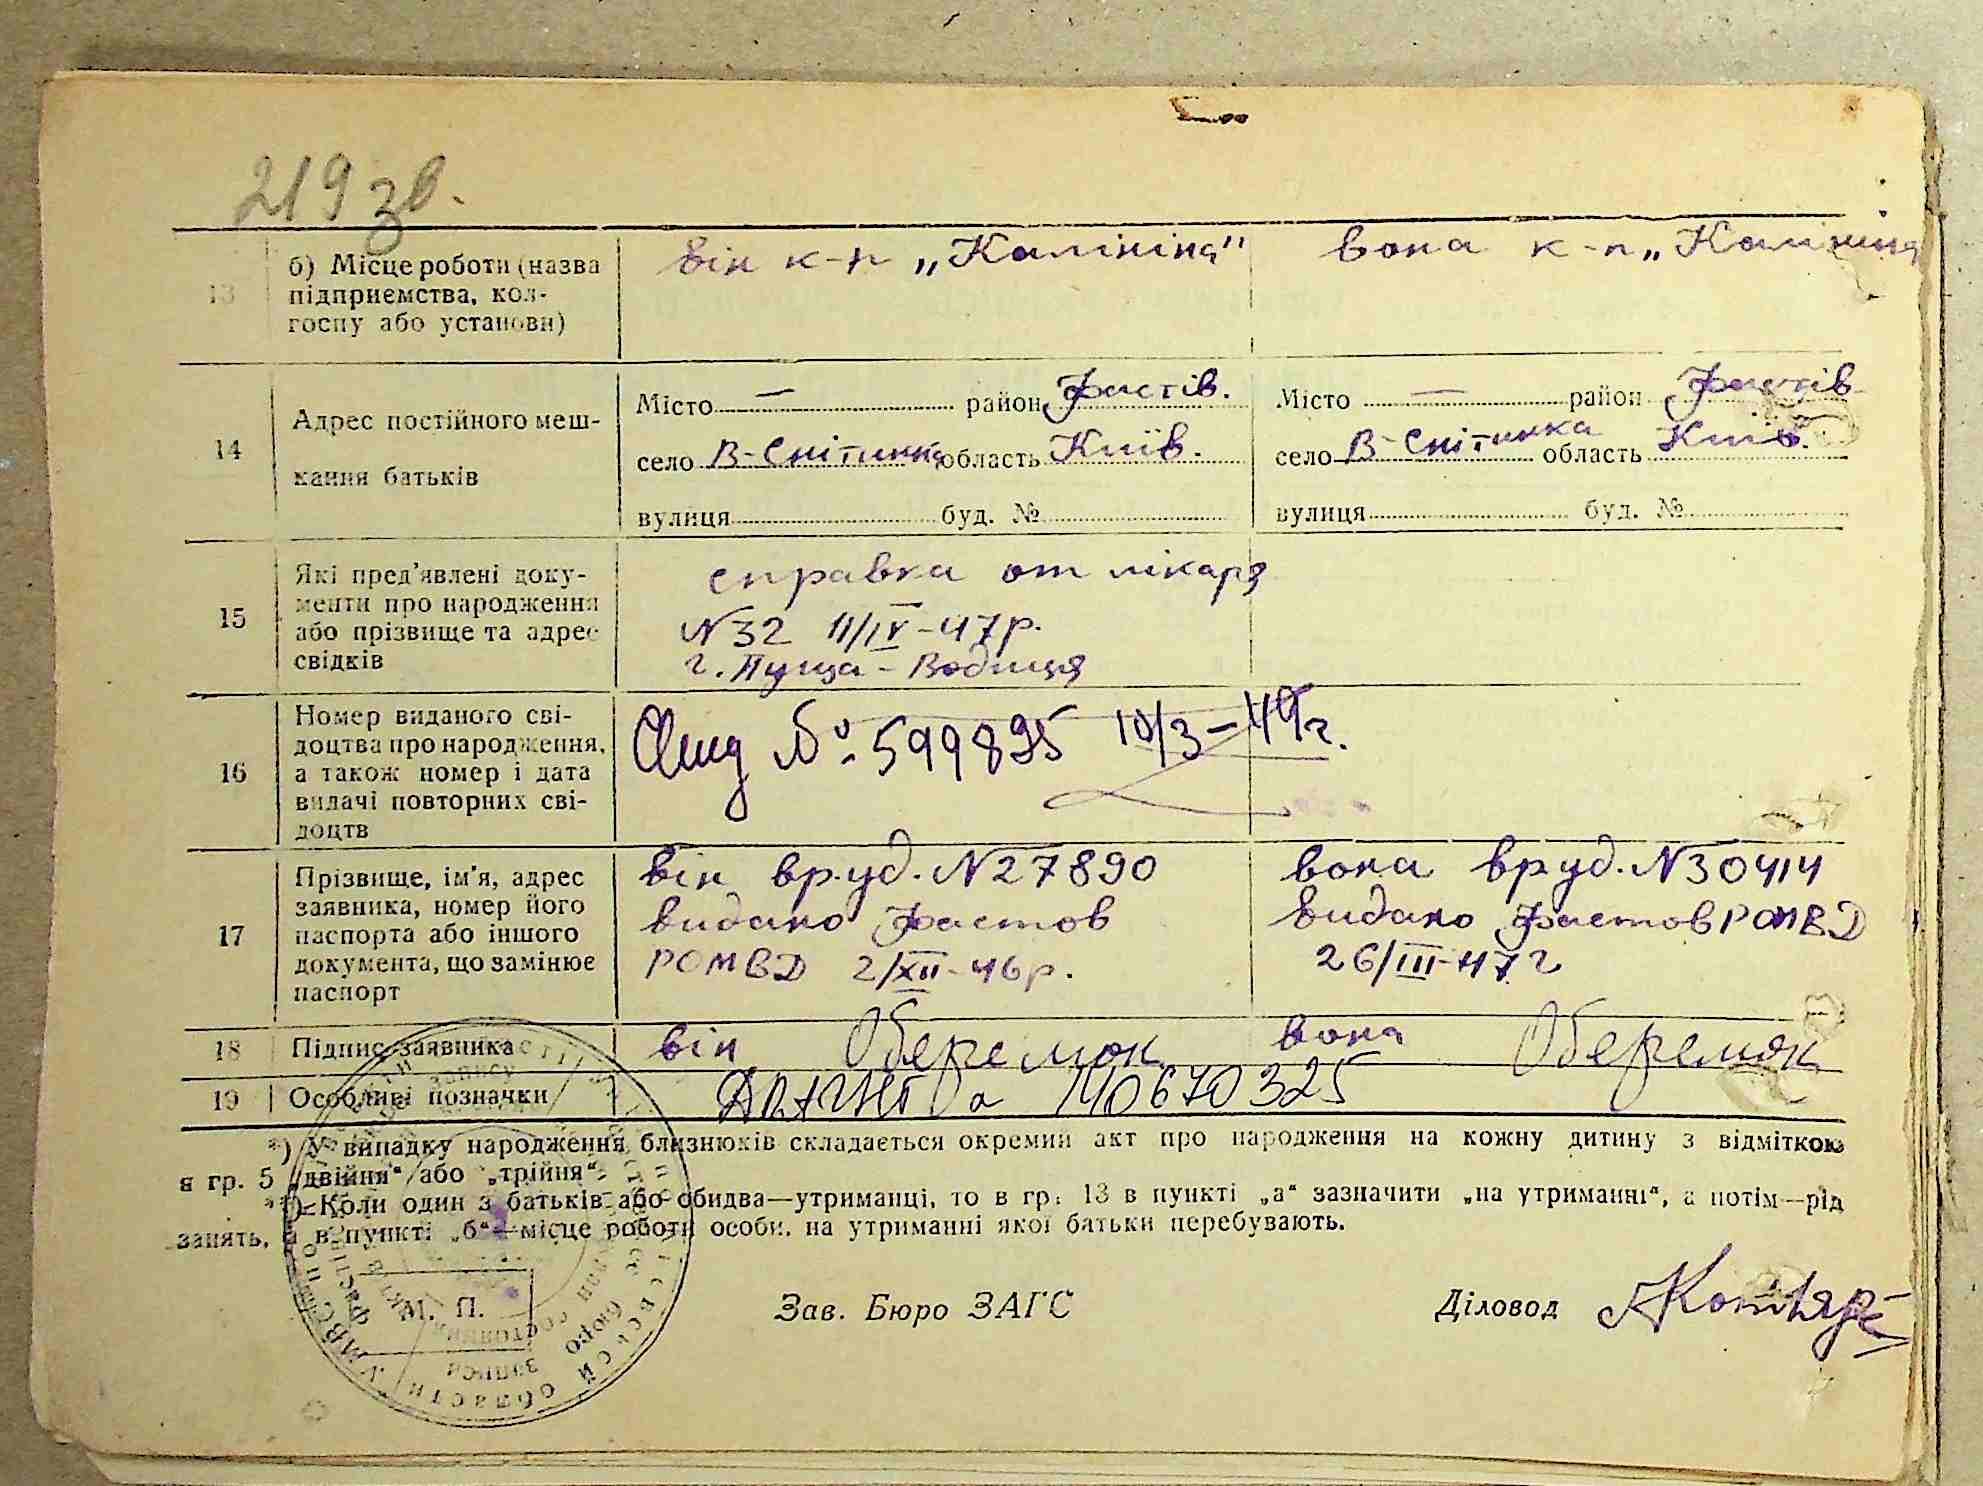 219 зв.
він к-п „Калініна" вона к-п „Калініна
13 б) Місце роботи (назва
підприємства, кол-
госпу або установи)
14 Адрес постійного меш-
кання батьків
Місто — район Фастів.
село В-Снітинка область Київ.
вулиця буд. №
Місто — район Фастів
село В-Снітинка область Київ.
вулиця буд. №
15 Які пред'явлені доку-
менти про народження
або прізвище та адрес
свідків
справка от лікаря
N32 11/IV-47р.
г. Пуща-Водиця
16 Номер виданого сві-
доцтва про народження,
а також номер і дата
видачі повторних сві-
доцтв
№ 599895 10/3-49г.
17 Прізвище, ім'я, адрес
заявника, номер його
паспорта або іншого
документа, що замінює
паспорт
він вр.уд. N27890
видано Фастов
РОМВД 2/XII-46р.
вона вр.уд. N30414
видано Фастов РОМВД
26/III-47г
18 Підпис заявника він Оберемок вона Оберемок
19 Особливі позначки 140670325
*) У випадку народження близнюків складається окремий акт про народження на кожну дитину з відміткою
в гр. 5 „двійня“ або „трійня“.
**) Коли один з батьків або обидва—утриманці, то в гр. 13 в пункті „а“ зазначити „на утриманні“, а потім—рід
занять, а в пункті „б“—місце роботи особи, на утриманні якої батьки перебувають.
М. П.
Зав. Бюро ЗАГС Діловод